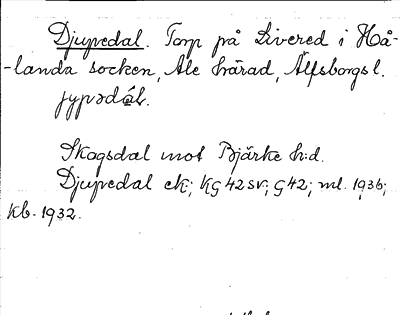 Djupedal. Torp på Livered i Hå-
-landa socken, Ale härad, Älfsborgs l.
jypədàl.
Skogsdal mot Bjärke h:d.
Djupedal ek; KG 42 sv; G 42; ml. 1936;
Kb. 1932.